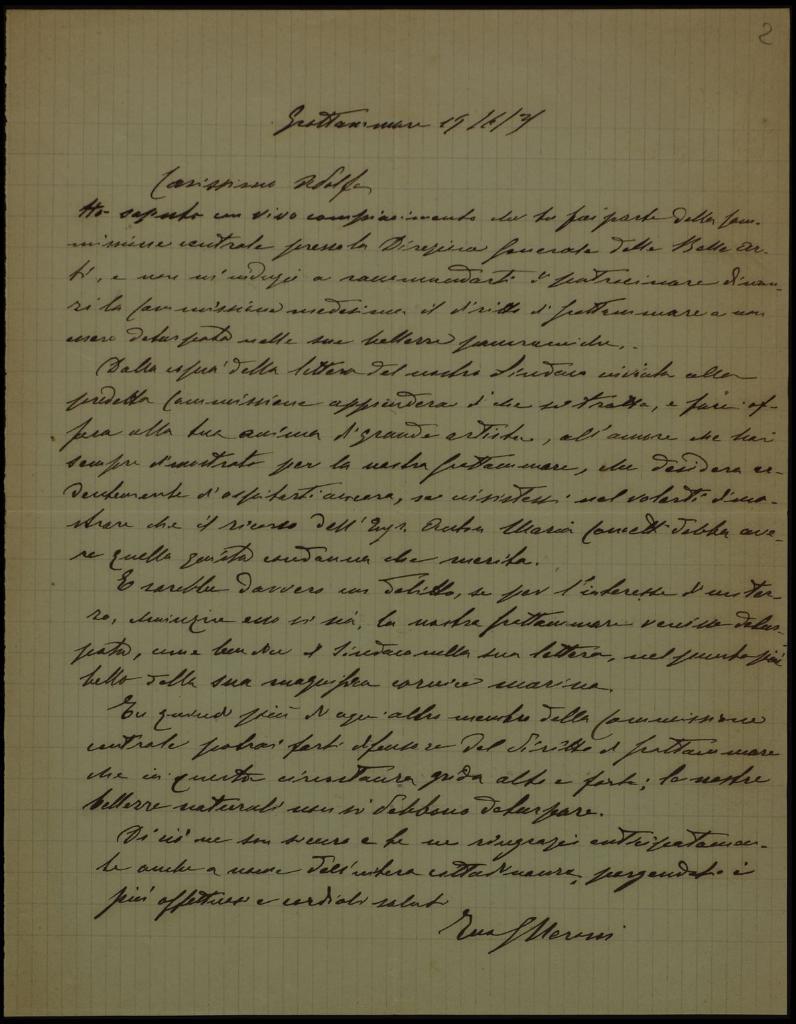 2
Grottammare 19/6/
Carissimo Adolfo
Ho saputo con vivo compiacimento che tu fai parte della Com-
missione centrale presso la Direzione Generale delle Belle Ar-
ti, e non m'indugio a raccomandarti di patrocinare dinan-
zi la Commissione medesima il diritto di Grottammare a non
essere deturpata nelle sue bellezze panoramiche.
Dalla copia della lettera del nostro Sindaco inviata alla
predetta Commissione apprenderai di che si tratta, e farei of-
fesa alla tua anima di grande artista, all'amore che hai
sempre dimostrato per la nostra Grottammare, che desidera ar-
dentemente d'ospitarti ancora, se insistessi nel volerti dimo-
strare che il ricorso dell'Ing. Maria debba ave-
re quella giusta condanna che merita.
E sarebbe davvero un delitto, se per l'interesse d'un ter-
zo, chiunque esso si sia, la nostra Grottammare venisse detur-
pata, come ben dice il Sindaco nella sua lettera, nel punto più
bello della sua magnifica cornice marina.
Tu quindi più di ogni altro membro della Commissione
centrale potrai farti difensore del diritto di Grottammare
che in questa circostanza grida alto e forte: le nostre
bellezze naturali non si debbono deturpare.
Di ciò ne son sicuro e te ne ringrazio anticipatamen-
te anche a nome dell'intera cittadinanza, porgendoti i
più affettuosi e cordiali saluti